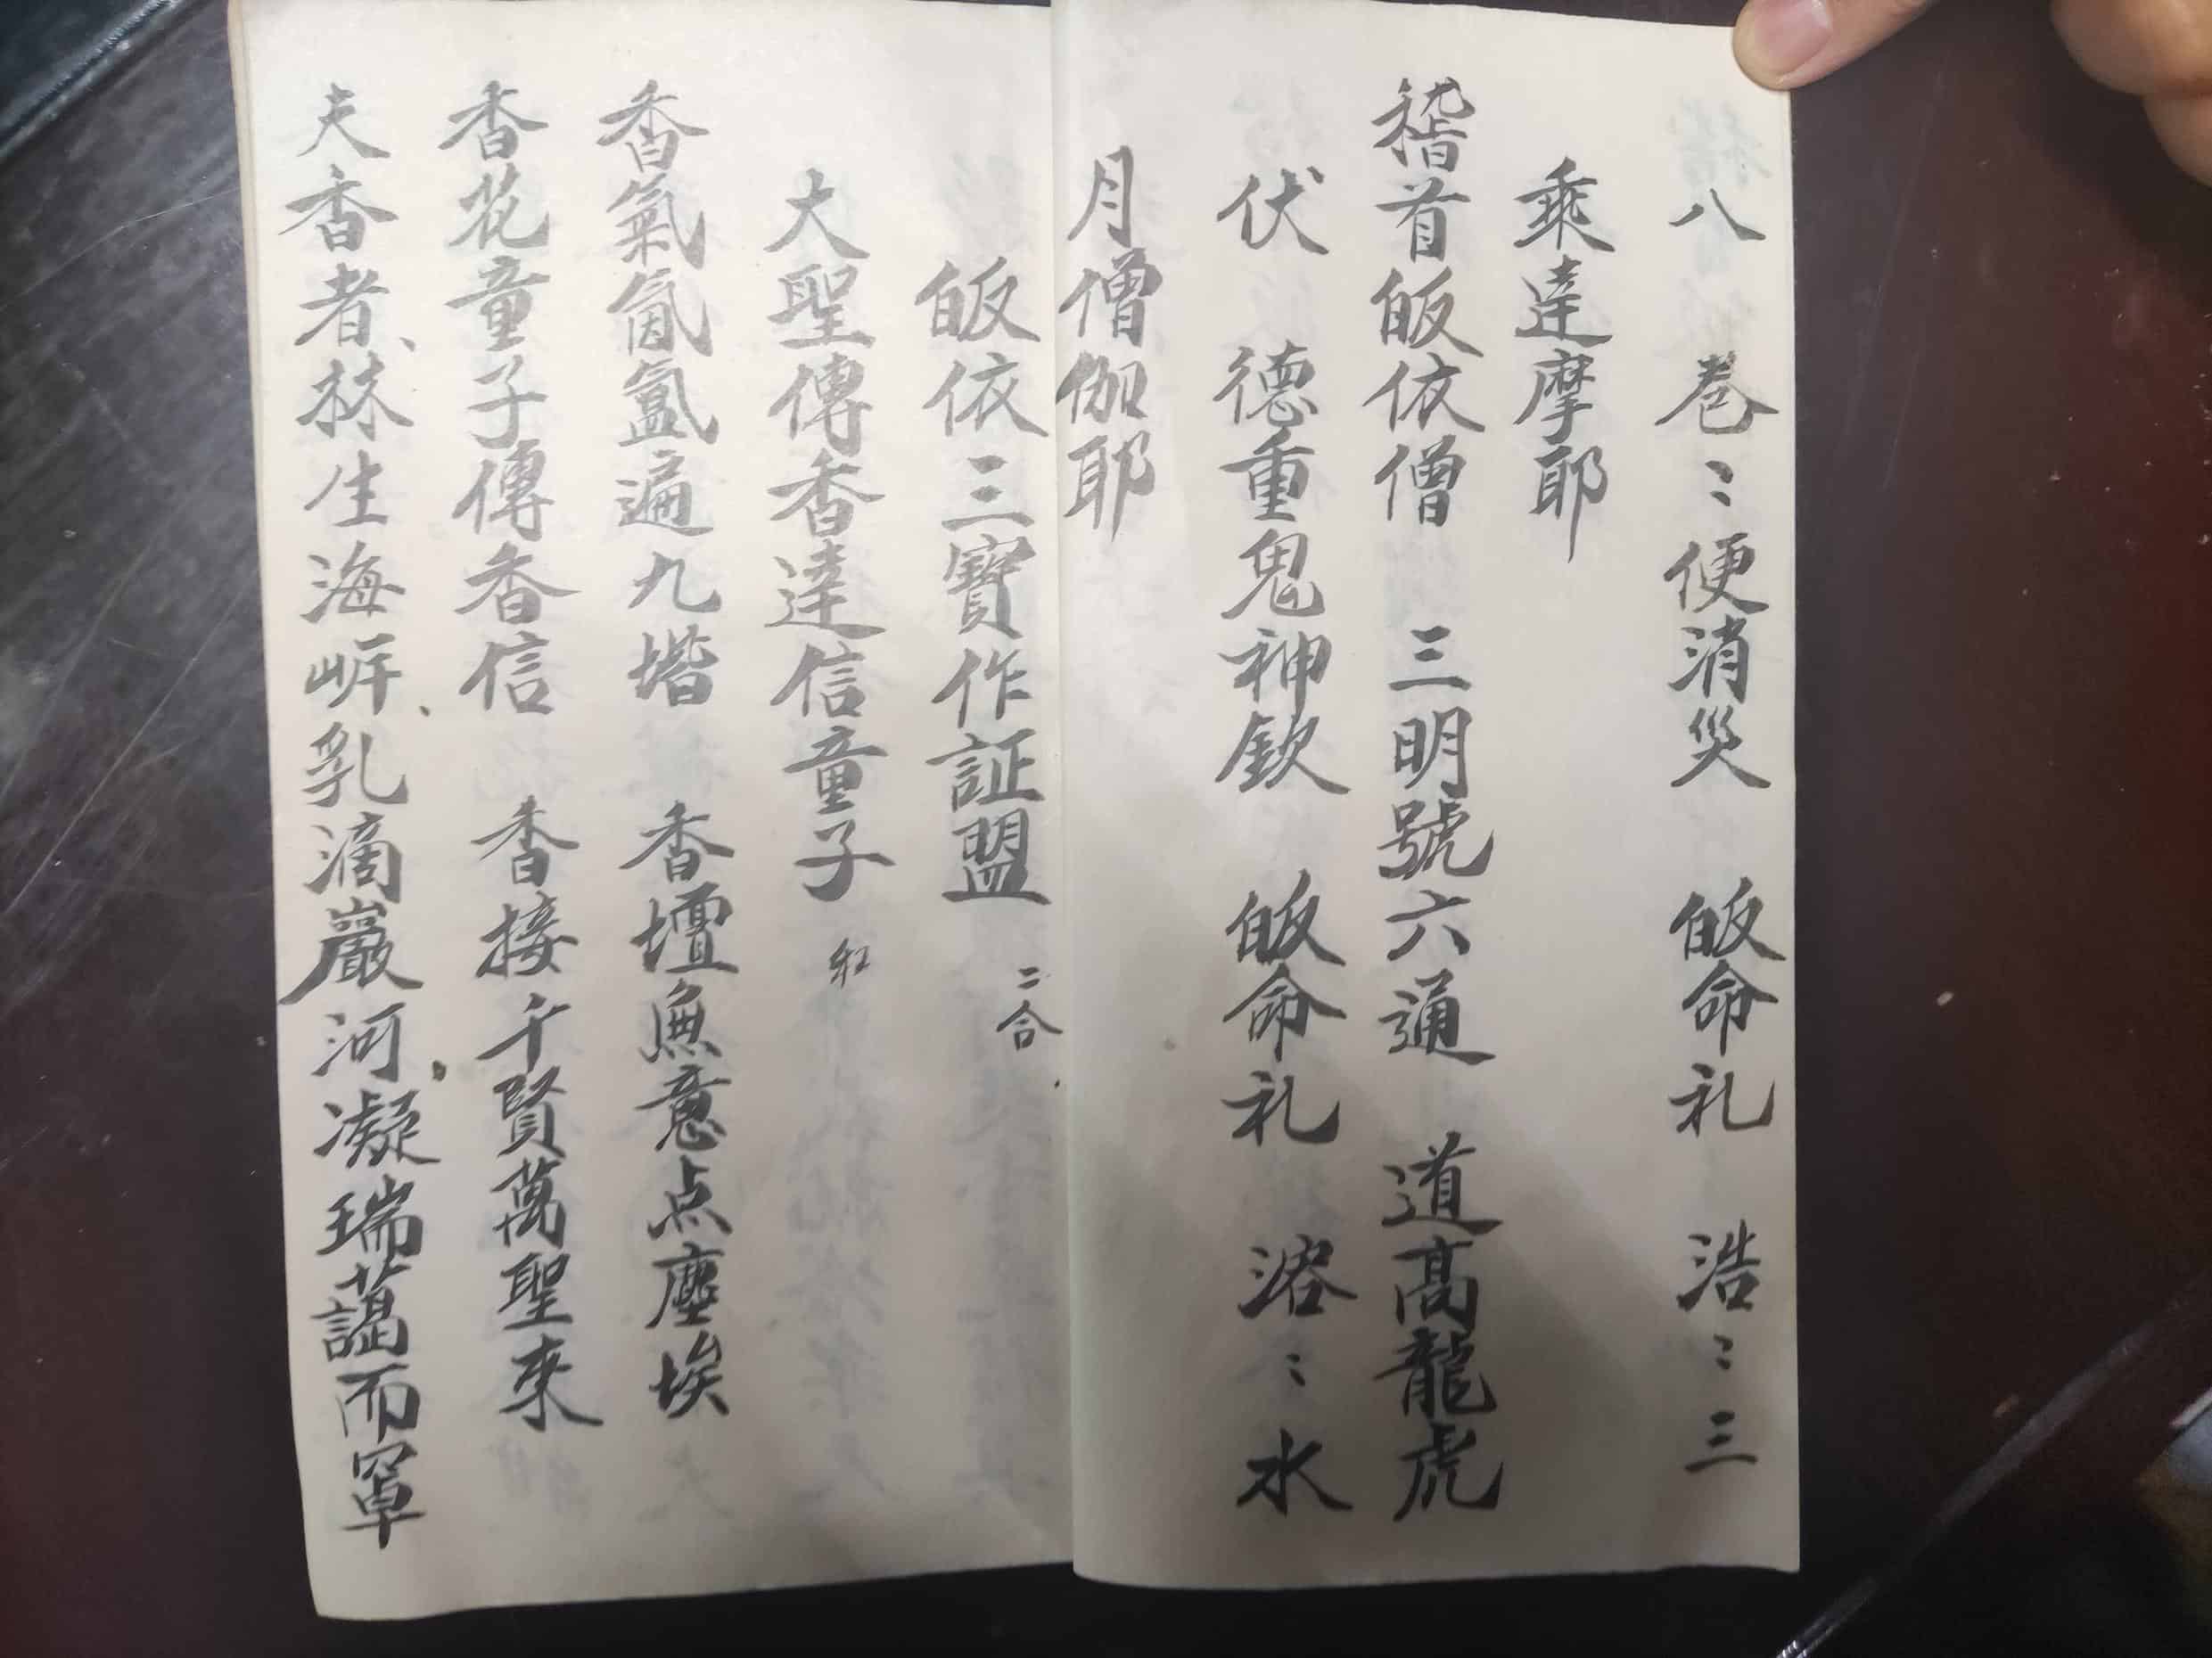 八　卷〻便消災　皈命礼　浩〻三
乘達摩耶
稽首皈依僧　三明號六通　道髙龍虎
伏　德重鬼神欽　皈命礼　溶〻水
月僧伽耶
皈依三寶作証盟　二合
大聖傳香達信童子
香氣氤氳遍九堦　香壇無意点塵埃
香花童子傳香信　香接千賢萬聖來
夫香者、林生海岸、乳滴巖河、凝瑞藹而罩